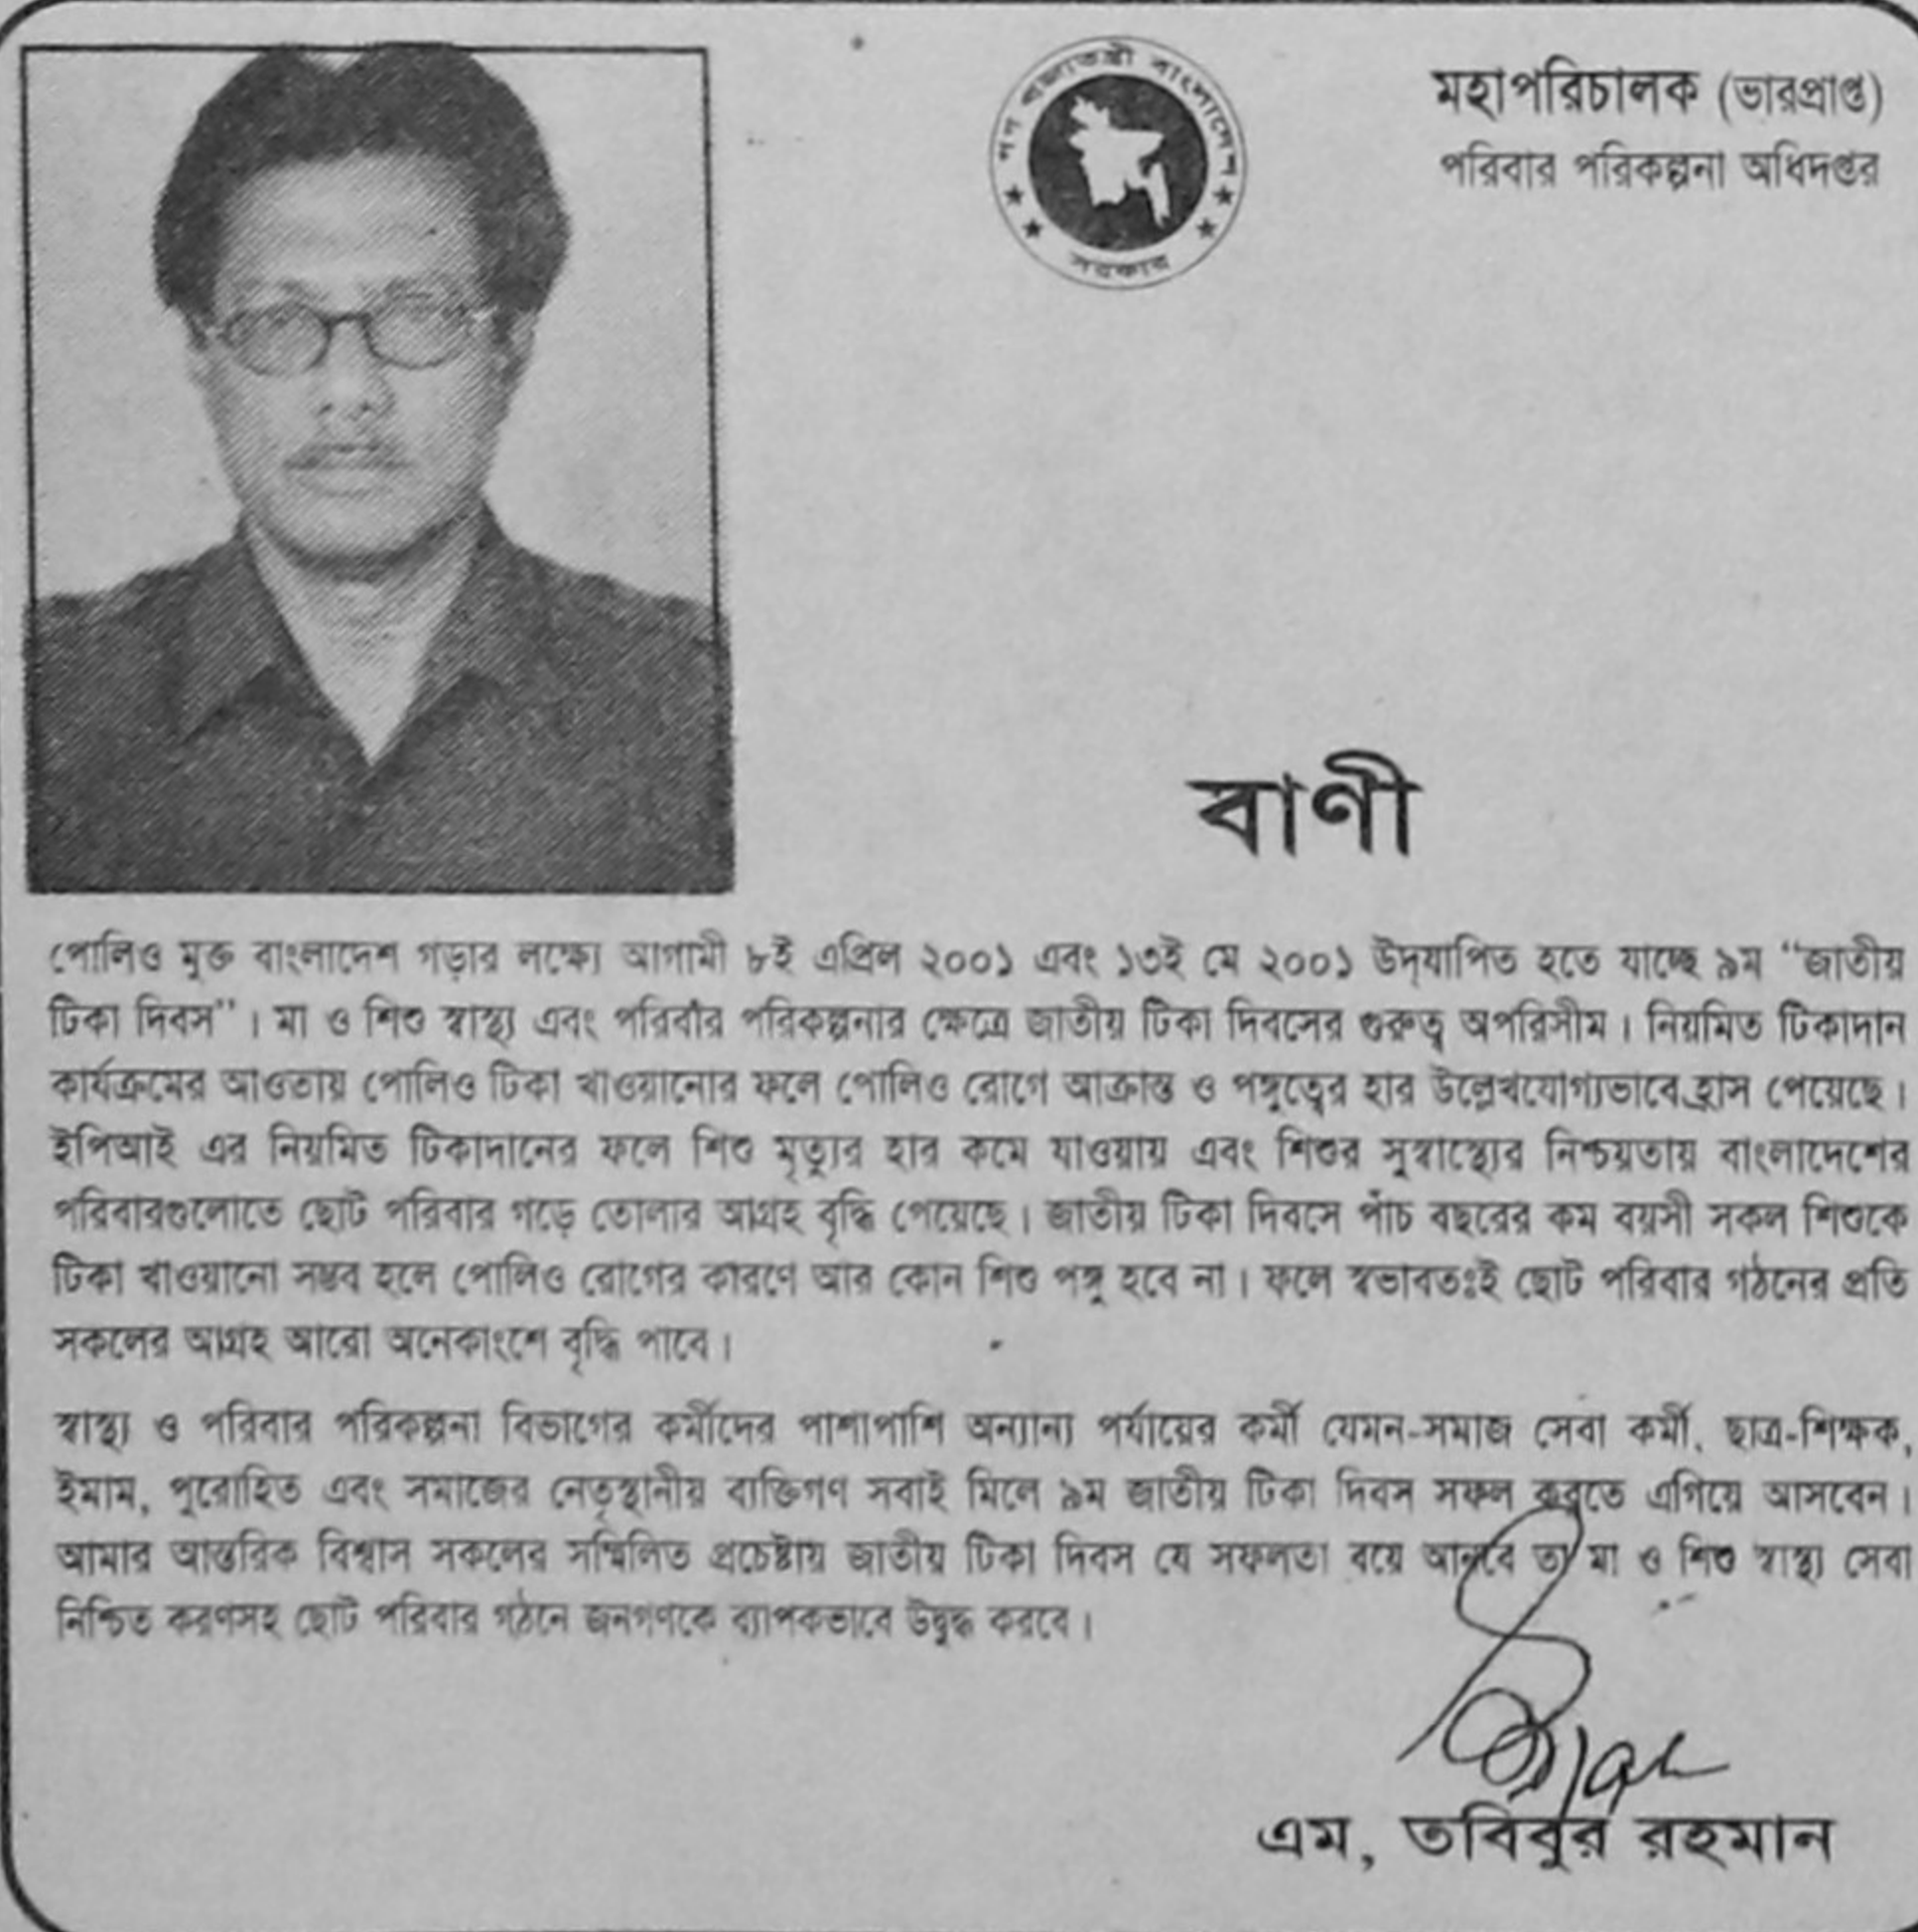 গণ প্রজাতন্ত্রী বাংলাদেশ
সরকার
মহাপরিচালক (ভারপ্রাপ্ত)
পরিবার পরিকল্পনা অধিদপ্তর
বাণী
পোলিও মুক্ত বাংলাদেশ গড়ার লক্ষ্যে আগামী ৮ই এপ্রিল ২০০১ এবং ১৩ই মে ২০০১ উদ্‌যাপিত হতে যাচ্ছে ৯ম “জাতীয়
টিকা দিবস”। মা ও শিশু স্বাস্থ্য এবং পরিবার পরিকল্পনার ক্ষেত্রে জাতীয় টিকা দিবসের গুরুত্ব অপরিসীম। নিয়মিত টিকাদান
কার্যক্রমের আওতায় পোলিও টিকা খাওয়ানোর ফলে পোলিও রোগে আক্রান্ত ও পঙ্গুত্বের হার উল্লেখযোগ্যভাবে হ্রাস পেয়েছে।
ইপিআই এর নিয়মিত টিকাদানের ফলে শিশু মৃত্যুর হার কমে যাওয়ায় এবং শিশুর সুস্বাস্থ্যের নিশ্চয়তায় বাংলাদেশের
পরিবারগুলোতে ছোট পরিবার গড়ে তোলার আগ্রহ বৃদ্ধি পেয়েছে। জাতীয় টিকা দিবসে পাঁচ বছরের কম বয়সী সকল শিশুকে
টিকা খাওয়ানো সম্ভব হলে পোলিও রোগের কারণে আর কোন শিশু পঙ্গু হবে না। ফলে স্বভাবতঃই ছোট পরিবার গঠনের প্রতি
সকলের আগ্রহ আরো অনেকাংশে বৃদ্ধি পাবে।
স্বাস্থ্য ও পরিবার পরিকল্পনা বিভাগের কর্মীদের পাশাপাশি অন্যান্য পর্যায়ের কর্মী যেমন-সমাজ সেবা কর্মী, ছাত্র-শিক্ষক,
ইমাম, পুরোহিত এবং সমাজের নেতৃস্থানীয় ব্যক্তিগণ সবাই মিলে ৯ম জাতীয় টিকা দিবস সফল করতে এগিয়ে আসবেন।
আমার আন্তরিক বিশ্বাস সকলের সম্মিলিত প্রচেষ্টায় জাতীয় টিকা দিবস যে সফলতা বয়ে আনবে তা মা ও শিশু স্বাস্থ্য সেবা
নিশ্চিত করণসহ ছোট পরিবার গঠনে জনগণকে ব্যাপকভাবে উদ্বুদ্ধ করবে।
এম, তবিবুর রহমান